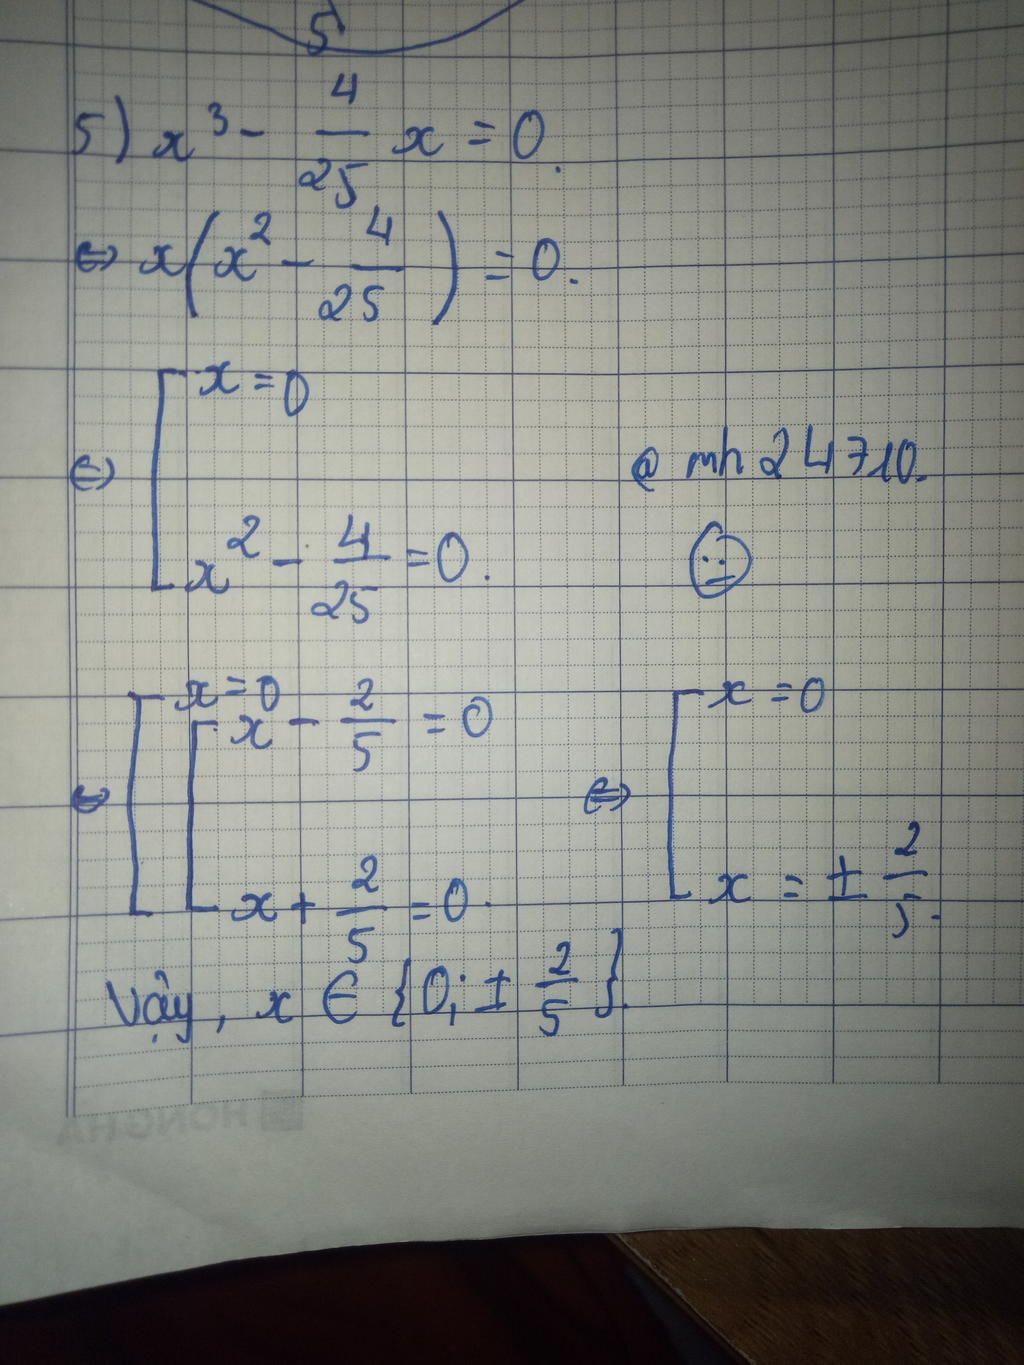 5
5) x³ - 4/25 x = 0.
⇔ x(x² - 4/25) = 0.
⇔ [ x = 0
x² - 4/25 = 0.
@ mh 24710.
⇔ [ x = 0
[ x - 2/5 = 0
x + 2/5 = 0.
⇔ [ x = 0
x = ± 2/5.
Vậy, x ∈ {0; ± 2/5}.
HONG HA